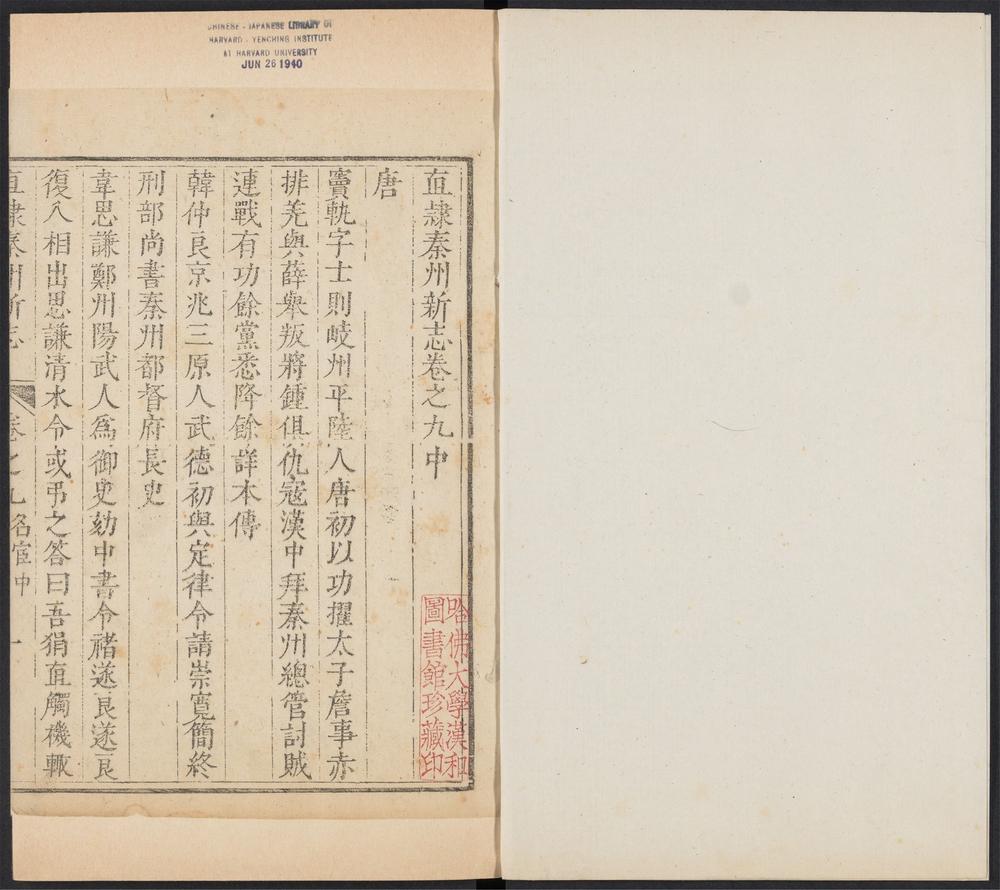 CHINESE - JAPANESE LIBRARY OF
HARVARD - YENCHING INSTITUTE
AT HARVARD UNIVERSITY
JUN 26 1940
直隷秦州新志卷之九中
唐
竇軌字士則岐州平陸人唐初以功擢太子詹事赤
排羌與薛舉叛將鍾俱仇寇漢中拜秦州總管討賊
連戰有功餘黨悉降餘詳本傳
韓仲良京兆三原人武德初與定律令請崇寬簡終
刑部尚書秦州都督府長史
韋思謙鄭州陽武人爲御史劾中書令禇遂良遂良
復入相出思謙清水令或弔之答曰吾狷直觸機輙
直隷秦州新志
卷之九名宦中
一
哈佛大學漢和
圖書館珍藏印